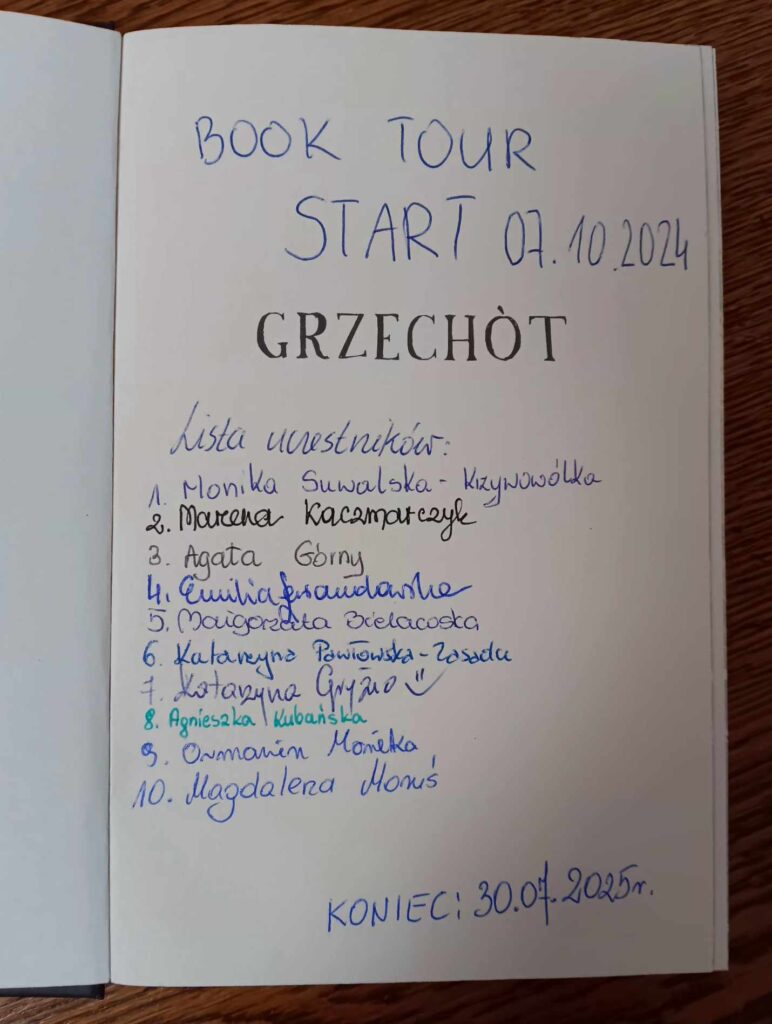 BOOK TOUR
START 07.10.2024
GRZECHÒT
Lista uczestników:
1. Monika Suwalska - Krzynowółka
2. Marzena Kaczmarczyk
3. Agata Górny
4. Emilia
5. Małgorzata Bielacoska
6. Katarzyna Pawłowska-Zasada
7. Katarzyna Gryźlo
8. Agnieszka Kubańska
9. Monika
10. Magdalena Moruś
KONIEC: 30.07.2025r.